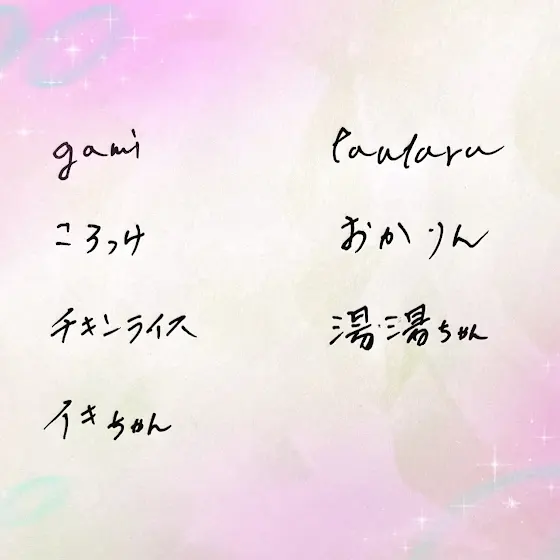 gami
tautaru
ころっけ
おかりん
チキンライス
湯湯ちゃん
イキちゃん